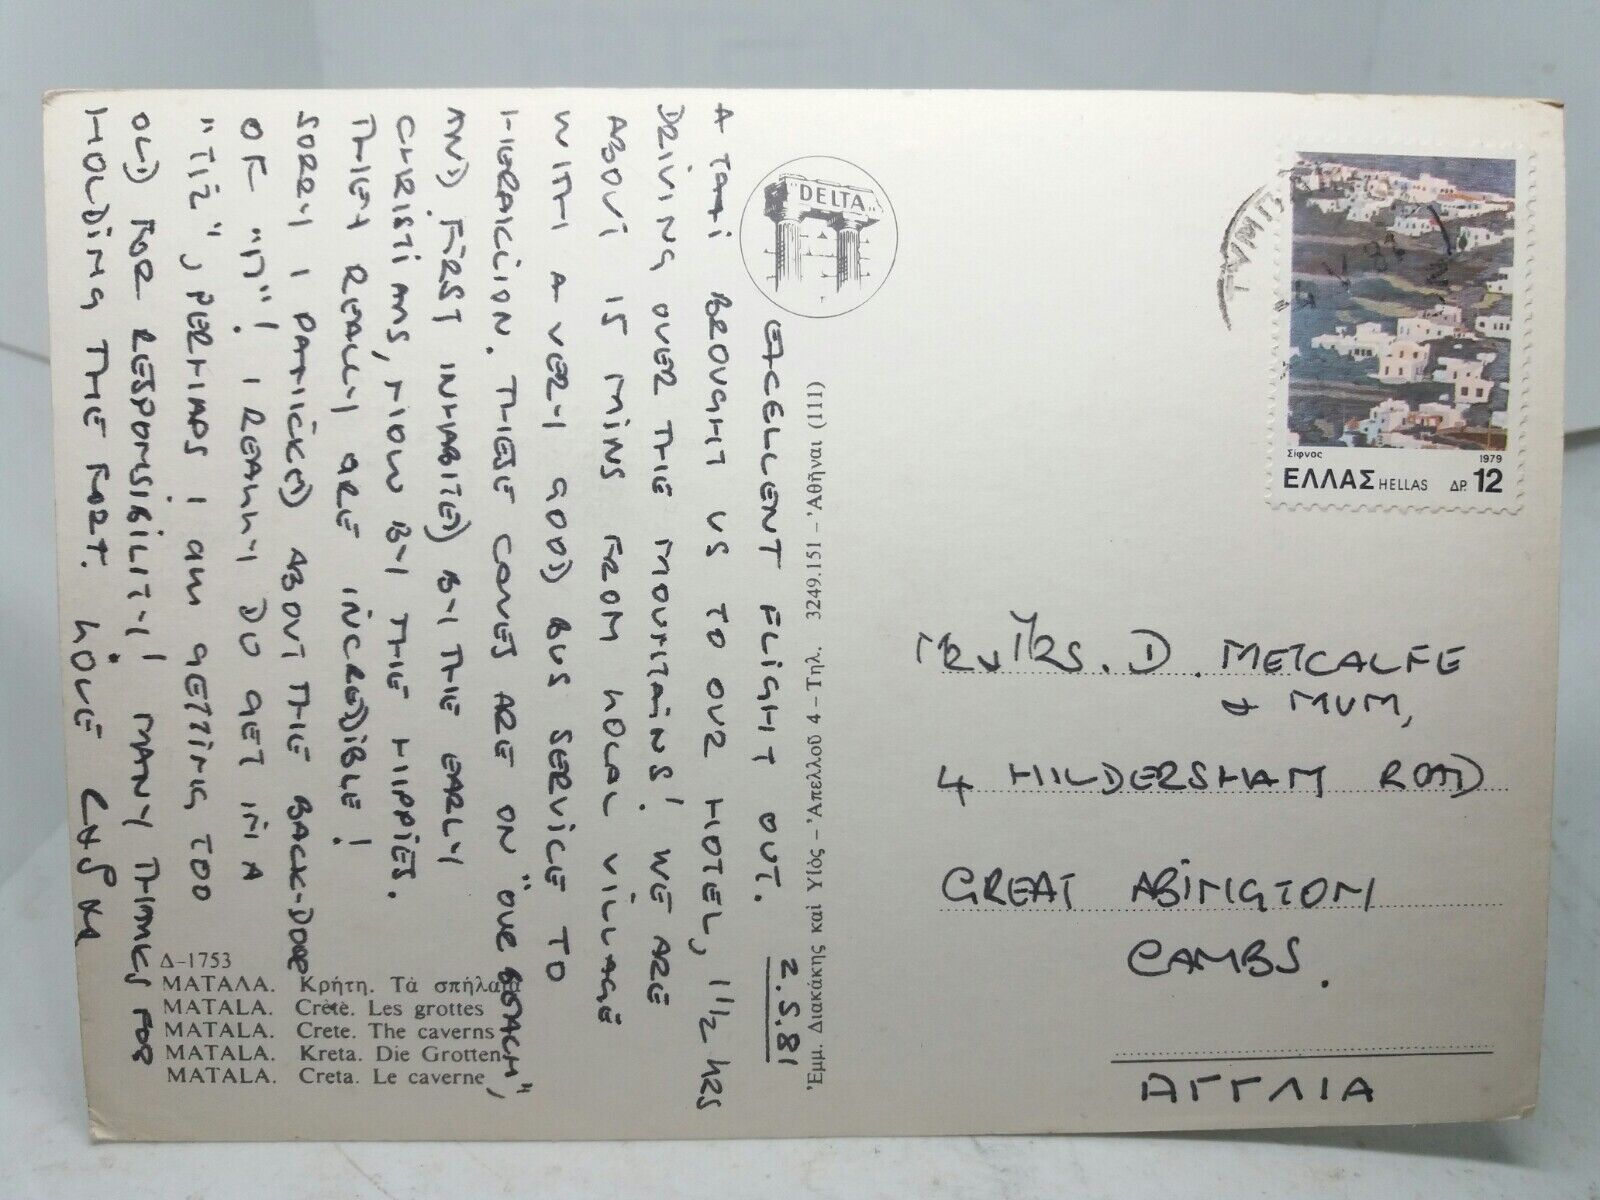 2.5.81
EXCELLENT FLIGHT OUT.
A TAXI BROUGHT US TO OUR HOTEL, 1 1/2 HRS
DRIVING OVER THE MOUNTAINS! WE ARE
ABOUT 15 MINS FROM LOCAL VILLAGE
WITH A VERY GOOD BUS SERVICE TO
HERAKLION. THESE CAVES ARE ON "OUR BEACH",
AND FIRST INHABITED BY THE EARLY
CHRISTIANS, NOW BY THE HIPPIES.
THEY REALLY ARE INCREDIBLE!
SORRY I PANICKED ABOUT THE BACK-DOOR
OF "11"! I REALLY DO GET IN A
"TIZ", PERHAPS I AM GETTING TOO
OLD FOR RESPONSIBILITY! MANY THANKS FOR
HOLDING THE FORT. LOVE
Δ-1753
ΜΑΤΑΛΑ. Κρήτη. Τὰ σπήλαια
MATALA. Crète. Les grottes
MATALA. Crete. The caverns
MATALA. Kreta. Die Grotten
MATALA. Creta. Le caverne
DELTA
Ἐμμ. Διακάκης καὶ Υἱὸς – Ἀπελλοῦ 4 – Τηλ. 3249.151 – Ἀθῆναι (111)
ΤΥΜΠ
Σίφνος 1979
ΕΛΛΑΣ HELLAS ΔΡ. 12
MR & MRS. D. METCALFE
& MUM,
4 HILDERSHAM ROAD
GREAT ABINGTON
CAMBS.
ΑΓΓΛΙΑ